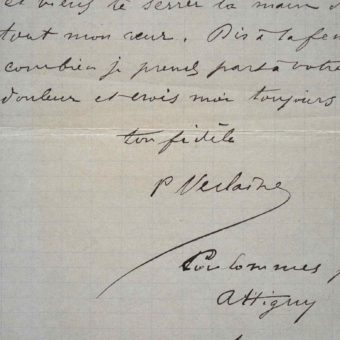 et viens te serrer la main d
tout mon cœur. Dis à ta fem
combien je prends part à votre
douleur et crois moi toujours
ton fidèle
P Verlaine
Coulommes
Attigny